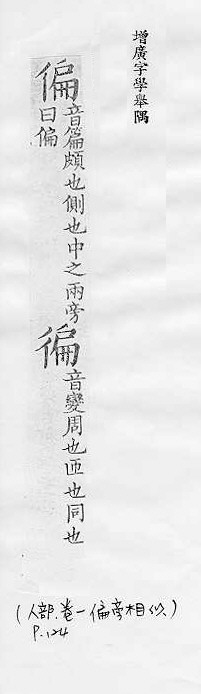 增廣字學舉隅
偏音篇頗也側也中之兩旁
曰偏
徧音變周也匝也同也
(人部、卷一偏旁相似、)
P.124